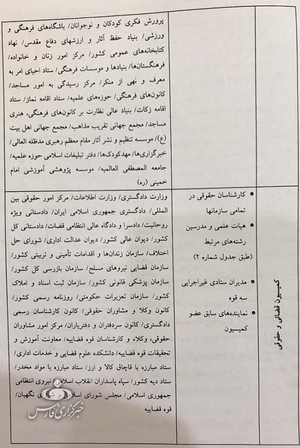 پرورش فکری کودکان و نوجوانان/ باشگاه‌های فرهنگی و
ورزشی/ بنیاد حفظ آثار و ارزشهای دفاع مقدس/ نهاد
کتابخانه‌های عمومی کشور/ مرکز امور زنان و خانواده/
فرهنگستان‌ها/ بنیادها و موسسات فرهنگی/ ستاد احیای امر به
معرف و نهی از منکر/ مرکز رسیدگی به امور مساجد/
کانون‌های فرهنگی/ حوزه‌های علمیه/ ستاد اقامه نماز/ ستاد
اقامه زکات/ بنیاد عالی نظارت بر کانون‌های فرهنگی، هنری
مساجد/ مجمع جهانی تقریب مذاهب/ مجمع جهانی اهل بیت
(ع)/ موسسه تنظیم و نشر آثار مقام معظم رهبری مدظله العالی/
خبرگزاری‌ها/ مهدکودک‌ها/ دفتر تبلیغات اسلامی حوزه علمیه/
جامعه المصطفی العالمیه/ موسسه پژوهشی آموزشی امام
خمینی (ره)
کمیسیون قضائی و حقوقی
کارشناسان حقوقی در
تمامی سازمانها
هیات علمی و مدرسین
رشته‌های مرتبط
(طبق جدول شماره ۲)
مدیران ستادی غیراجرایی
سه قوه
نماینده‌های سابق عضو
کمیسیون
وزارت دادگستری/ وزارت اطلاعات/ مرکز امور حقوقی بین
المللی/ دادگستری جمهوری اسلامی ایران/ دادستانی ویژه
روحانیت/ دادسرا و دادگاه عالی انتظامی قضات/ دادستانی کل
کشور/ دیوان عالی کشور/ دیوان عدالت اداری/ شورای حل
اختلاف/ سازمان زندان‌ها و اقدامات تأمینی و تربیتی کشور/
سازمان قضایی نیروهای مسلح/ سازمان بازرسی کل کشور/
سازمان پزشکی قانونی کشور/ سازمان ثبت اسناد و املاک
کشور/ سازمان تعزیرات حکومتی/ روزنامه رسمی کشور/
کانون وکلا و مشاوران حقوقی/ کانون کارشناسان رسمی
دادگستری/ کانون سردفتران و دفتریاران/ مرکز امور مشاوران
حقوقی، وکلاء و کارشناسان قوه قضاییه/ معاونت آموزش و
تحقیقات قوه قضاییه/ دانشکده علوم قضایی و خدمات اداری/
ستاد مبارزه با قاچاق کالا و ارز/ ستاد مبارزه با مواد مخدر/
ستاد دیه کشور/ سپاه پاسداران انقلاب اسلامی/ نیروی انتظامی
جمهوری اسلامی/ مجلس شورای اسلامی و شورای نگهبان/
قوه قضاییه
خبرگزاری فارس